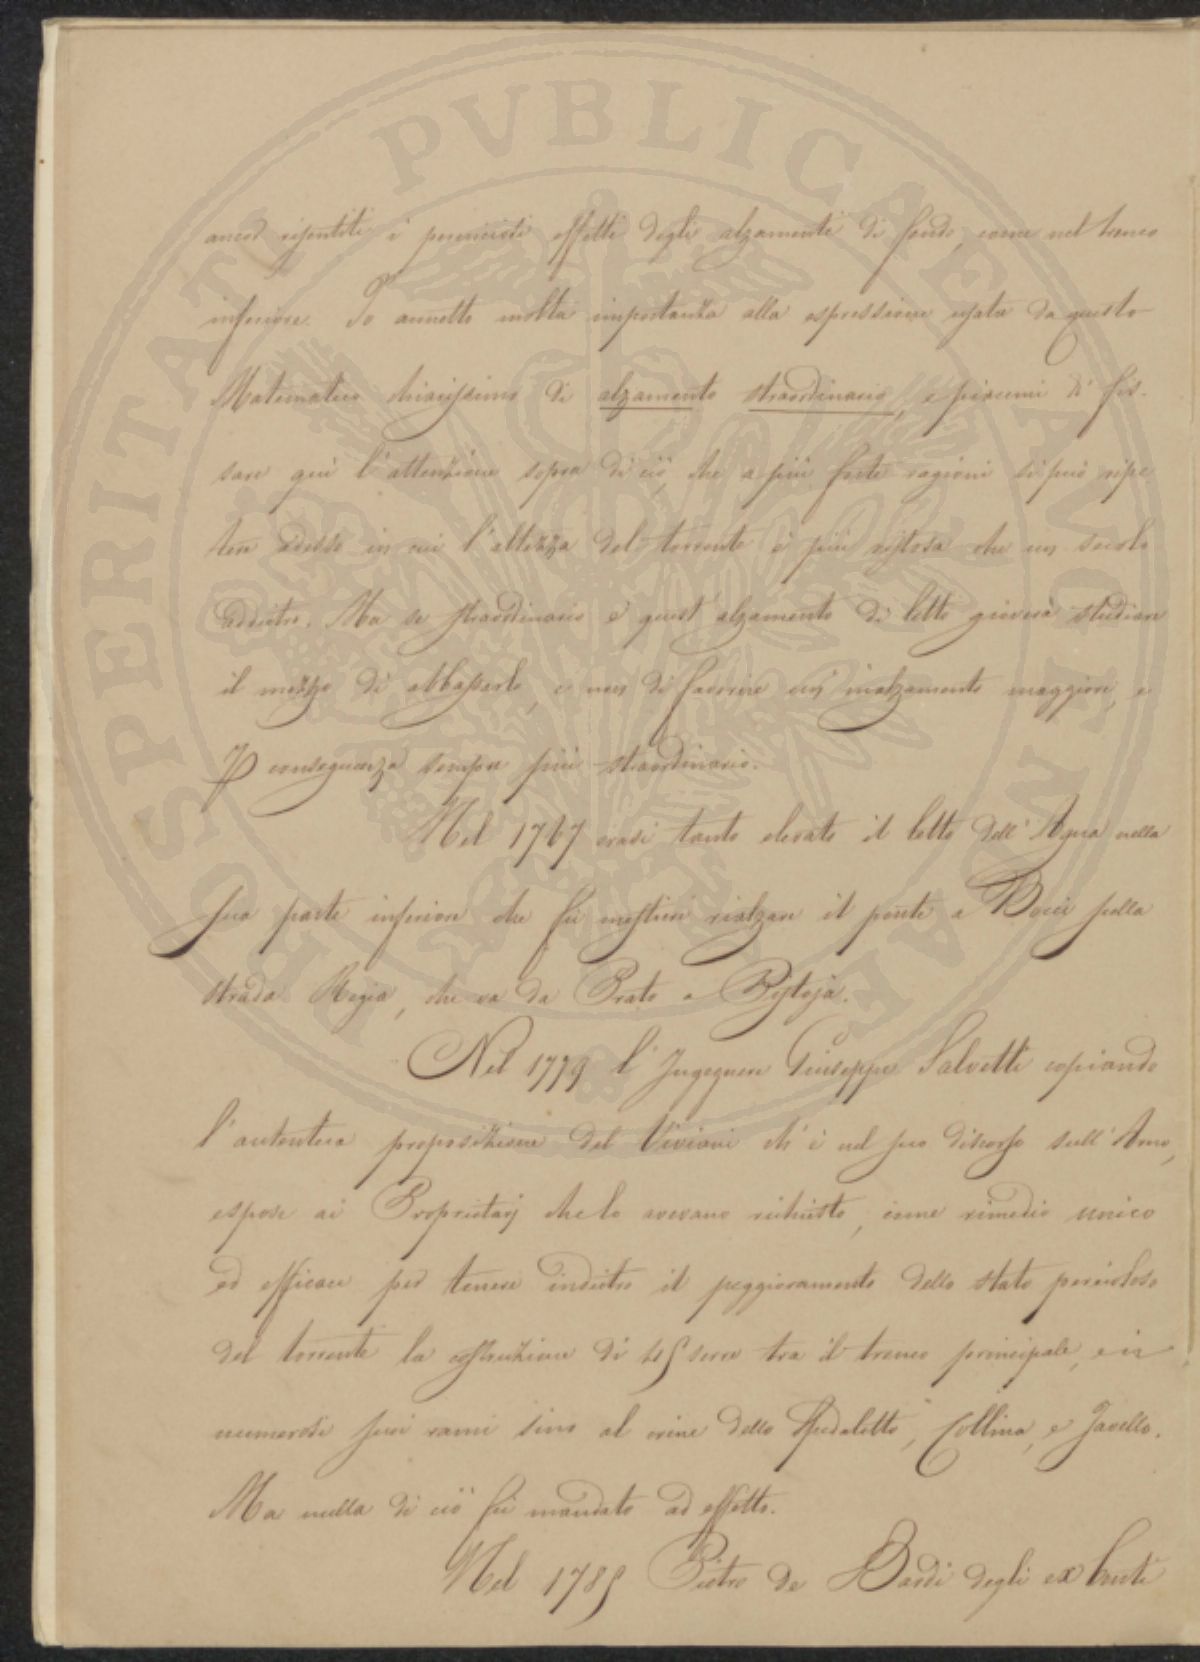 PROSPERITATI PVBLICAE AVGENDAE
ancor risentiti i perniciosi effetti degli alzamenti di fondo, come nel tronco
inferiore. Io annetto molta importanza alla espressione usata da questo
Matematico chiarissimo di alzamento straordinario, e piacemi di fis-
sare quì l'attenzione sopra di ciò, che a più forte ragioni si può ripe-
tere adesso in cui l'altezza del torrente è più vistosa che un secolo
addietro. Ma se straordinario è quest'alzamento di letto gioverà studiare
il mezzo di abbassarlo, e non di favorire un'inalzamento maggiore, e
P conseguenza sempre più straordinario.
Nel 1767 erasi tanto elevato il letto dell'Agna nella
sua parte inferiore che fù mestieri rialzare il ponte a Bocci sulla
strada Regia, che va da Prato a Pistoja.
Nel 1779 l'Ingegnere Giuseppe Salvetti copiando
l'autentica proposizione del Viviani ch'è nel suo discorso sull'Arno,
espose ai Proprietarj che lo avevano richiesto, come rimedio unico
ed efficace per tenere indietro il peggioramento dello stato pericoloso
del torrente la costruzione di 45 serre tra il tronco principale, e in
numerosi suoi rami sino al crine dello Spedaletto, Collina, e Javello.
Ma nulla di ciò fù mandato ad effetto.
Nel 1785 Pietro de Bardi degli ex Conti